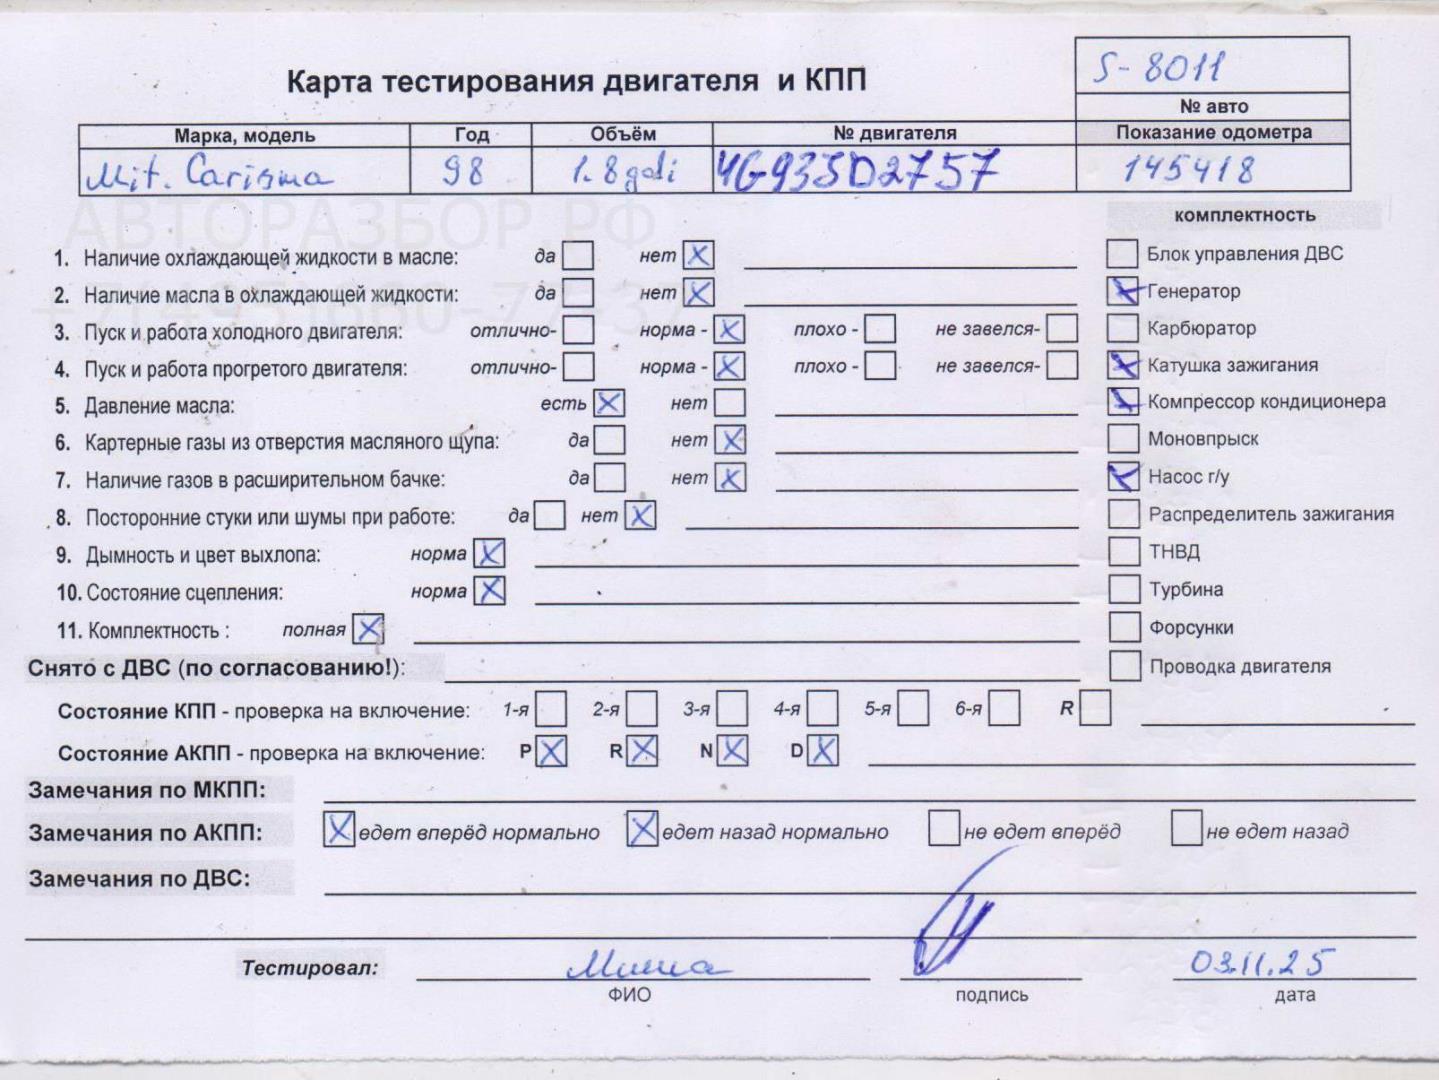 S-8011
Карта тестирования двигателя и КПП
№ авто
Марка, модель Год Объём № двигателя Показание одометра
Mit. Carisma 98 1.8 gdi 4G93SD2757 145418
АВТОРАЗБОР.РФ
комплектность
1. Наличие охлаждающей жидкости в масле: да нет Блок управления ДВС
2. Наличие масла в охлаждающей жидкости: да нет Генератор
3. Пуск и работа холодного двигателя: отлично- норма - плохо - не завелся- Карбюратор
4. Пуск и работа прогретого двигателя: отлично- норма - плохо - не завелся- Катушка зажигания
5. Давление масла: есть нет Компрессор кондиционера
6. Картерные газы из отверстия масляного щупа: да нет Моновпрыск
7. Наличие газов в расширительном бачке: да нет Насос г/у
8. Посторонние стуки или шумы при работе: да нет Распределитель зажигания
9. Дымность и цвет выхлопа: норма ТНВД
10. Состояние сцепления: норма Турбина
11. Комплектность : полная Форсунки
Снято с ДВС (по согласованию!): Проводка двигателя
Состояние КПП - проверка на включение: 1-я 2-я 3-я 4-я 5-я 6-я R
Состояние АКПП - проверка на включение: P R N D
Замечания по МКПП:
Замечания по АКПП: едет вперёд нормально едет назад нормально не едет вперёд не едет назад
Замечания по ДВС:
Тестировал: Миша 03.11.25
ФИО подпись дата